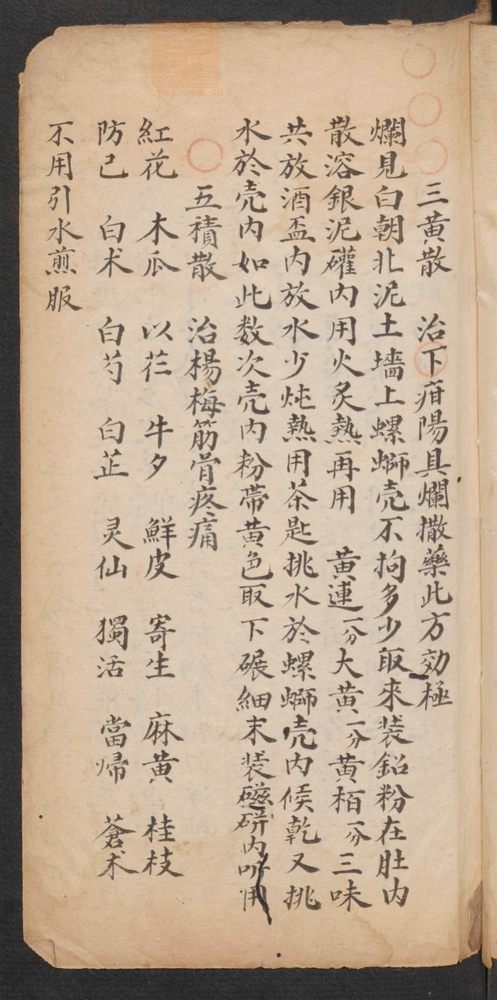 三黃散　治下疳陽具爛撒藥此方効極
爛見白朝北泥土墻上螺螄壳不拘多少取來裝鉛粉在肚内
散溶銀泥礶内用火炙熱再用　黃連一分大黃一分黃栢一分三味
共放酒盃内放水少炖熱用茶匙挑水於螺螄壳内候乾又挑
水於壳内如此数次壳内粉帶黃色取下碾細末裝磁研内听用
五積散　治楊梅筋骨疼痛
紅花　木瓜　以苡　牛夕　鮮皮　寄生　麻黃　桂枝
防己　白术　白芍　白芷　灵仙　獨活　當帰　蒼术
不用引水煎服